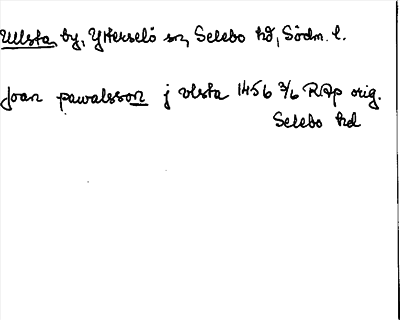 Ullsta by, Ytterselö sn, Selebo hd, Södm. l.
Joan pawalsson j vlsta 1456 3/6 RAp orig.
Selebo hd